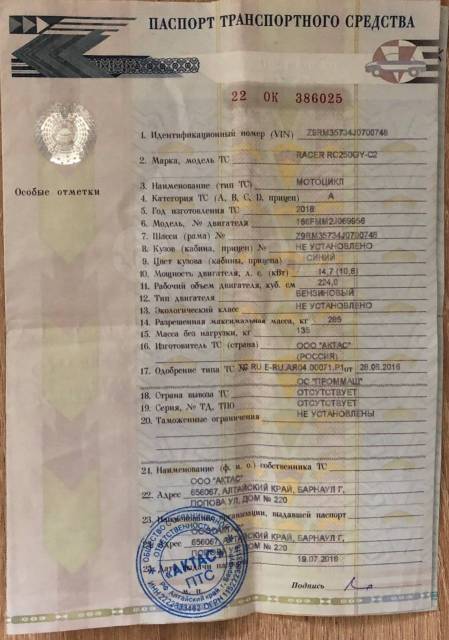 ПАСПОРТ ТРАНСПОРТНОГО СРЕДСТВА
22 ОК 386025
1. Идентификационный номер (VIN) Z9RM35734J0700748
2. Марка, модель ТС RACER RC250GY-C2
Особые отметки
3. Наименование (тип ТС) МОТОЦИКЛ
4. Категория ТС (А, В, С, D, прицеп) А
5. Год изготовления ТС 2018
6. Модель, № двигателя
7. Шасси (рама) № Z9RM35734J0700748
8. Кузов (кабина, прицеп) № НЕ УСТАНОВЛЕНО
9. Цвет кузова (кабины, прицепа) СИНИЙ
10. Мощность двигателя, л. с. (кВт) 14,7 (10,8)
11. Рабочий объем двигателя, куб. см 224,0
12. Тип двигателя БЕНЗИНОВЫЙ
13. Экологический класс НЕ УСТАНОВЛЕНО
14. Разрешенная максимальная масса, кг 285
15. Масса без нагрузки, кг 135
16. Изготовитель ТС (страна) ООО "АКТАС"
(РОССИЯ)
17. Одобрение типа ТС № RU Е-RU.АЯ04.00071.Р1 от 28.06.2016
ОС "ПРОММАШ"
18. Страна вывоза ТС ОТСУТСТВУЕТ
19. Серия, № ТД, ТПО ОТСУТСТВУЕТ
20. Таможенные ограничения НЕ УСТАНОВЛЕНЫ
21. Наименование (ф. и. о.) собственника ТС
ООО "АКТАС"
22. Адрес 656067, АЛТАЙСКИЙ КРАЙ, БАРНАУЛ Г,
ПОПОВА УЛ, ДОМ № 220
23. Наименование организации, выдавшей паспорт
24. Адрес 656067, АЛТАЙСКИЙ КРАЙ, БАРНАУЛ Г,
ДОМ № 220
25. Дата выдачи паспорта 19.07.2018
М. П. Подпись
"АКТАС"
ПТС